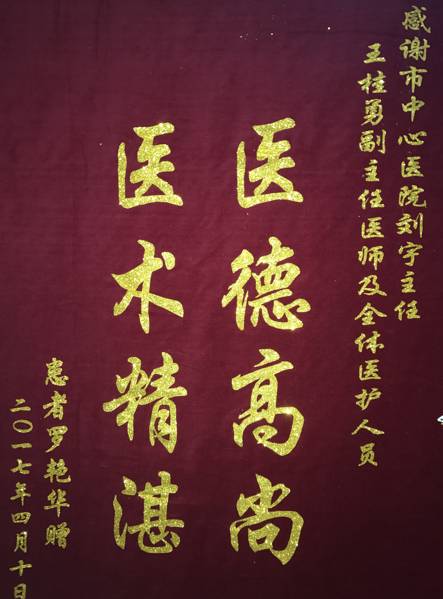 感谢市中心医院刘宇主任
王桂勇副主任医师及全体医护人员
医德高尚
医术精湛
患者罗艳华赠
二〇一七年四月十日